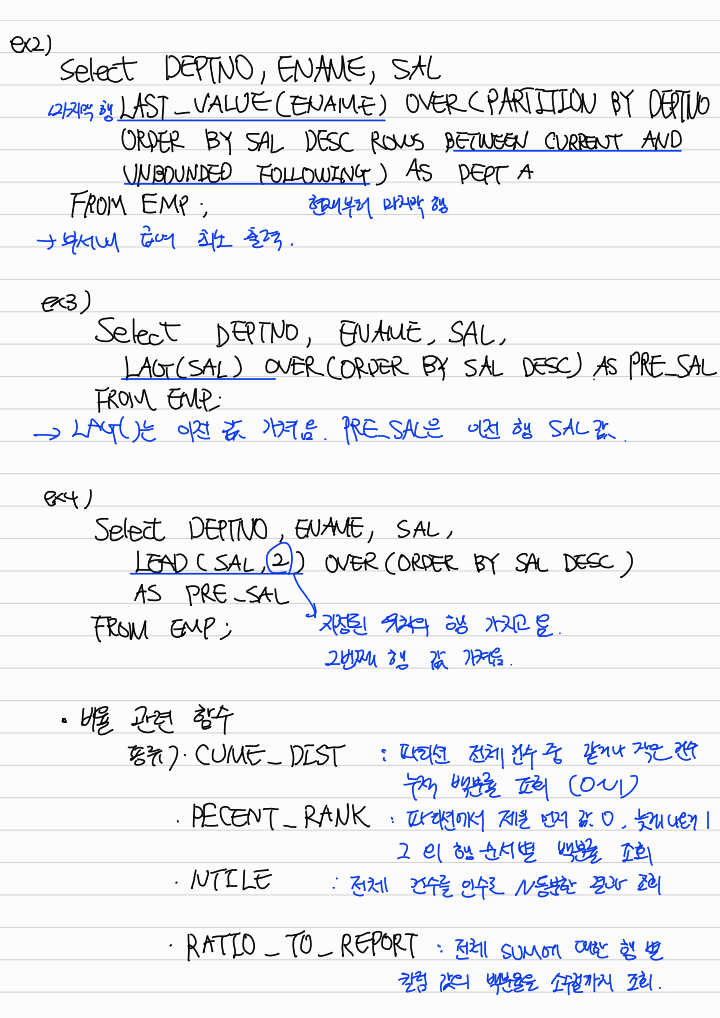 ex2)
Select DEPTNO, ENAME, SAL
마지막 행 LAST_VALUE(ENAME) OVER(PARTITION BY DEPTNO
ORDER BY SAL DESC ROWS BETWEEN CURRENT AND
UNBOUNDED FOLLOWING) AS DEPT A
FROM EMP;
현재부터 마지막 행
→ 부서내 급여 최소 출력.
ex3)
Select DEPTNO, ENAME, SAL,
LAG(SAL) OVER(ORDER BY SAL DESC) AS PRE_SAL
FROM EMP;
→ LAG()는 이전 값 가져옴. PRE_SAL은 이전 행 SAL값.
ex4)
Select DEPTNO, ENAME, SAL,
LEAD(SAL,2) OVER(ORDER BY SAL DESC)
AS PRE_SAL
FROM EMP;
지정된 위치의 행 가지고 옴.
2번째 행 값 가져옴.
• 비율 관련 함수
종류). CUME_DIST : 파티션 전체 건수 중 같거나 작은 건수
누적 백분률 조회 (0~1)
· PECENT_RANK : 파티션에서 제일 먼저 값 0, 늦게나온게 1
그 외 행 순서별 백분률 조회
· NTILE : 전체 건수를 인수로 N등분한 결과 조회
· RATIO_TO_REPORT : 전체 SUM에 대한 행 별
칼럼 값의 백분율을 소수점까지 조회.